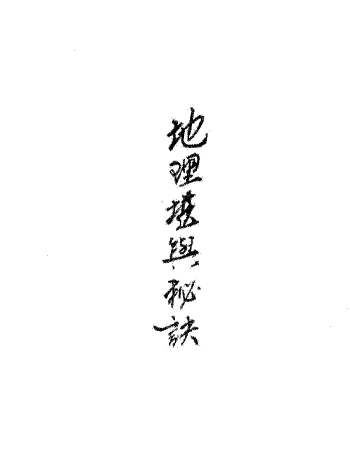 地理堪輿秘訣